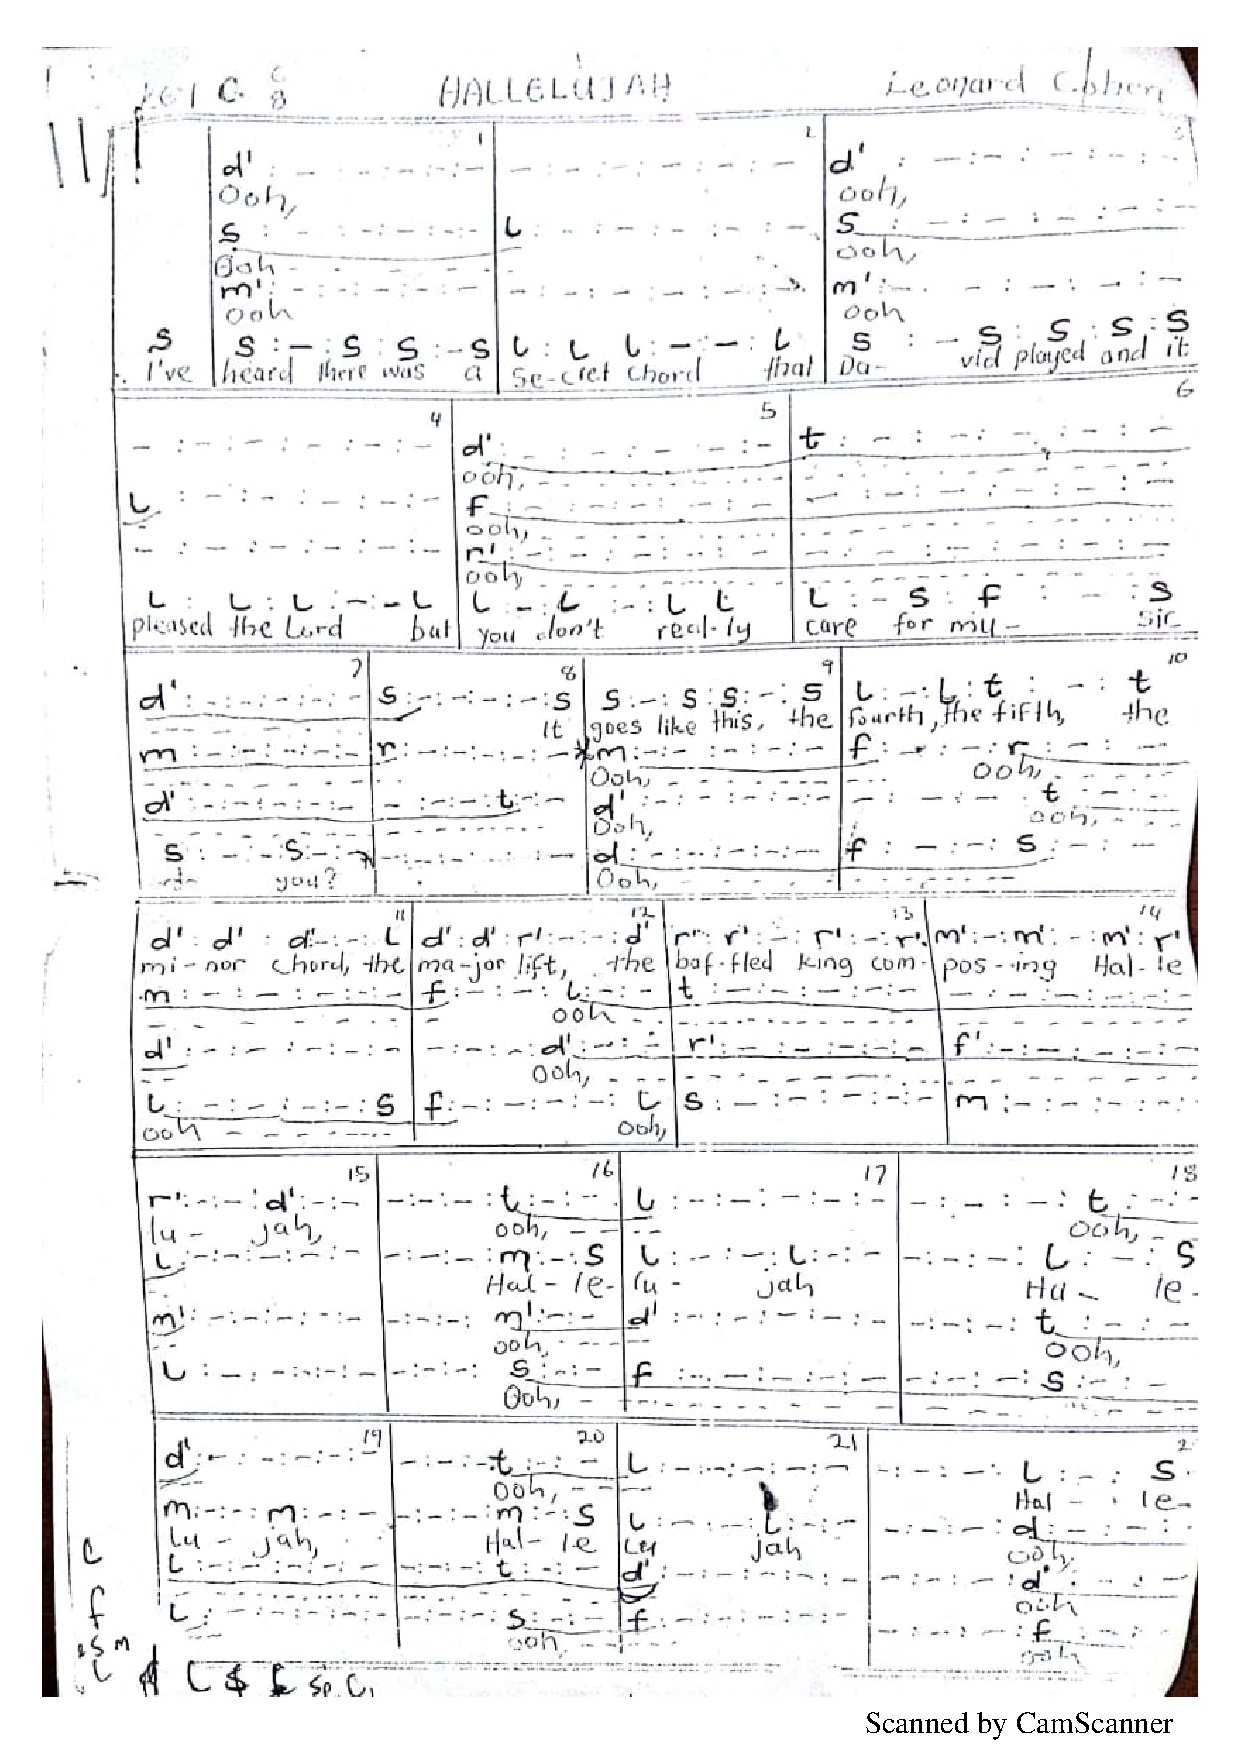 HALLELUJAH Leonard Cohen
1 2 3
d' : - : - : - : - : - - : - : - : - : - : - d' : - : - : - : - : -
Ooh, ooh,
s : - : - : - : - : - l : - : - : - : - : - s : - : - : - : - : -
Ooh ooh,
m' : - : - : - : - : - - : - : - : - : - : - m' : - : - : - : - : -
ooh ooh
s s : - : s s : - s l : l l : - : - : l s : - s : s : s : s
I've heard there was a Se-cret chord that Da- vid played and it
4 5 6
- : - : - : - : - : - d' : - : - : - : - : - t : - : - : - : - : -
ooh,
l : - : - : - : - : - f : - : - : - : - : - - : - : - : - : - : -
ooh,
- : - : - : - : - : - r' : - : - : - : - : - - : - : - : - : - : -
ooh
l : l : l : - : - l l : - : l : - : l l l : - s : f : - : s
pleased the Lord but you don't real-ly care for mu- sic
7 8 9 10
d' : - : - : - : - : - s : - : - : - : - : s s : - : s : s : - : s l : - : l : t : - : t
It goes like this, the fourth, the fifth, the
m : - : - : - : - : - r : - : - : - : - : - m : - : - : - : - : - f : - : - : r : - : -
Ooh, ooh,
d' : - : - : - : - : - - : - : - : t : - : - d' : - : - : - : - : - - : - : - : t : - : -
Ooh, ooh,
s : - : - s : - : - - : - : - : - : - : - d : - : - : - : - : - f : - : - : s : - : -
you? Ooh,
11 12 13 14
d' : d' : d' : - : - : l d' : d' : r' : - : - : d' r' : r' : - : r' : - : r' m' : - : m' : - : m' : r'
mi-nor chord, the ma-jor lift, the baf-fled king com- pos-ing Hal-le
m : - : - : - : - : - f : - : - : l : - : - t : - : - : - : - : - - : - : - : - : - : -
ooh
d' : - : - : - : - : - - : - : - : d' : - : - r' : - : - : - : - : - f' : - : - : - : - : -
ooh,
l : - : - : - : - : s f : - : - : - : - : l s : - : - : - : - : - m : - : - : - : - : -
ooh ooh,
15 16 17 18
r' : - : - : d' : - : - - : - : - : t : - : - l : - : - : - : - : - - : - : - : t : - : -
lu- jah, ooh, ooh,
l : - : - : - : - : - - : - : - : m : - : s l : - : - : l : - : - - : - : - : l : - : s
Hal-le- lu- jah Ha- le-
m' : - : - : - : - : - - : - : - : m' : - : - d' : - : - : - : - : - - : - : - : t : - : -
ooh, ooh,
l : - : - : - : - : - - : - : - : s : - : - f : - : - : - : - : - - : - : - : s : - : -
Ooh,
19 20 21
d' : - : - : - : - : - - : - : - : t : - : - l : - : - : - : - : - - : - : - : l : - : s
ooh, Hal- le-
m : - : - : m : - : - - : - : - : m : - : s l : - : - : l : - : - - : - : - : d : - : -
lu- jah, Hal-le jah ooh,
l : - : - : - : - : - - : - : - : t : - : - d' : - : - : - : - : - - : - : - : d' : - : -
ooh
l : - : - : - : - : - - : - : - : s : - : - f : - : - : - : - : - - : - : - : f : - : -
ooh ooh
Scanned by CamScanner